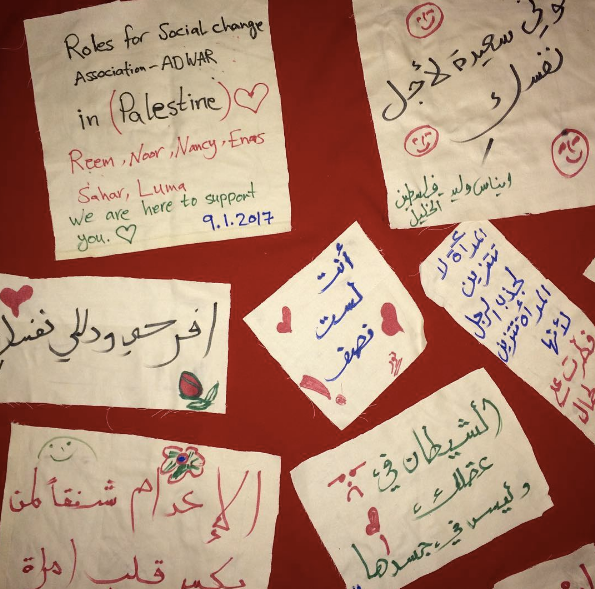 Roles for Social change
Association - ADWAR
in (Palestine)
Reem, Noor, Nancy, Enas
Sahar, Luma
we are here to support
you.
9.1.2017
سعيدة لأجل
نفسك
إيناس وليد فلسطين
الخليل
أنت
لست
نصف
المرأة لا
تتزين
لجذب الرجل
المرأة تتزين
لأنها
افرحي ودللي نفسك
الشيطان في
عقلك
وليس في جسدها
الإعدام شنقاً لمن
يكسر قلب امرأة